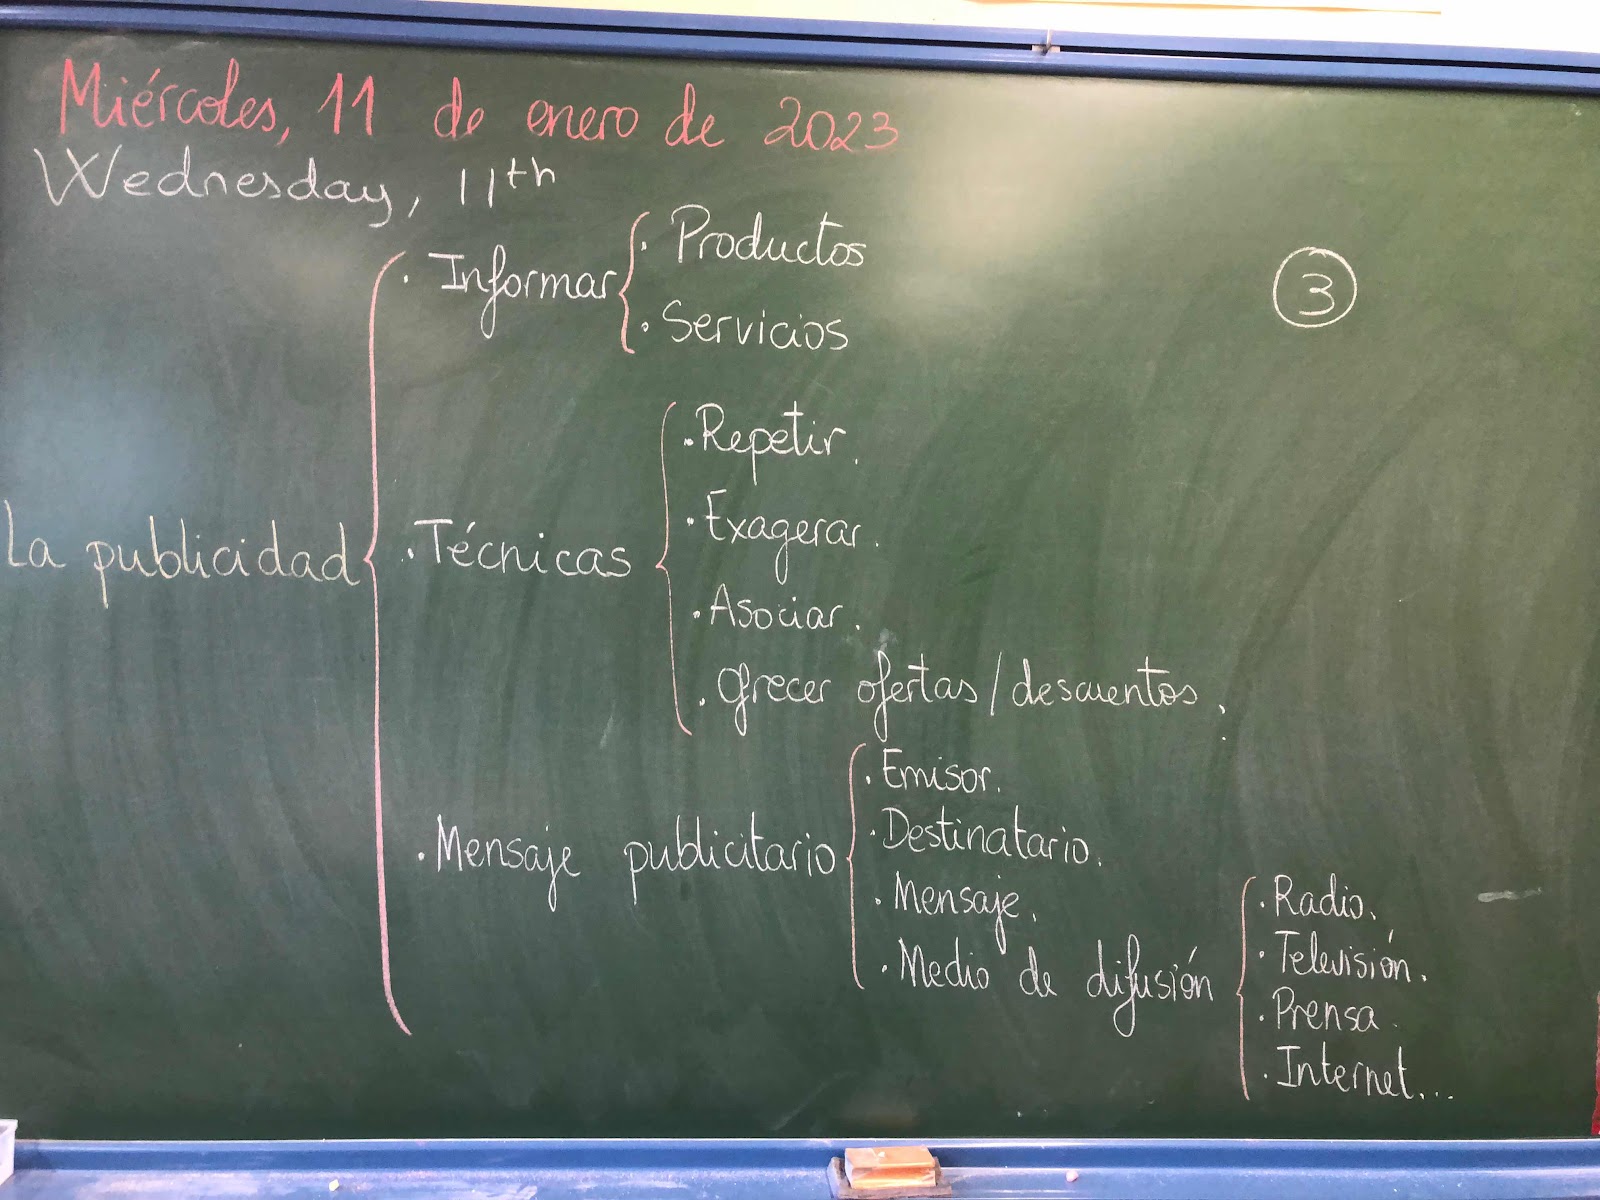 Miércoles, 11 de enero de 2023
Wednesday, 11th
La publicidad
· Informar
· Productos
· Servicios
3
· Técnicas
· Repetir.
· Exagerar.
· Asociar.
· Ofrecer ofertas/descuentos.
· Mensaje publicitario
· Emisor.
· Destinatario.
· Mensaje.
· Medio de difusión
· Radio.
· Televisión.
· Prensa.
· Internet...